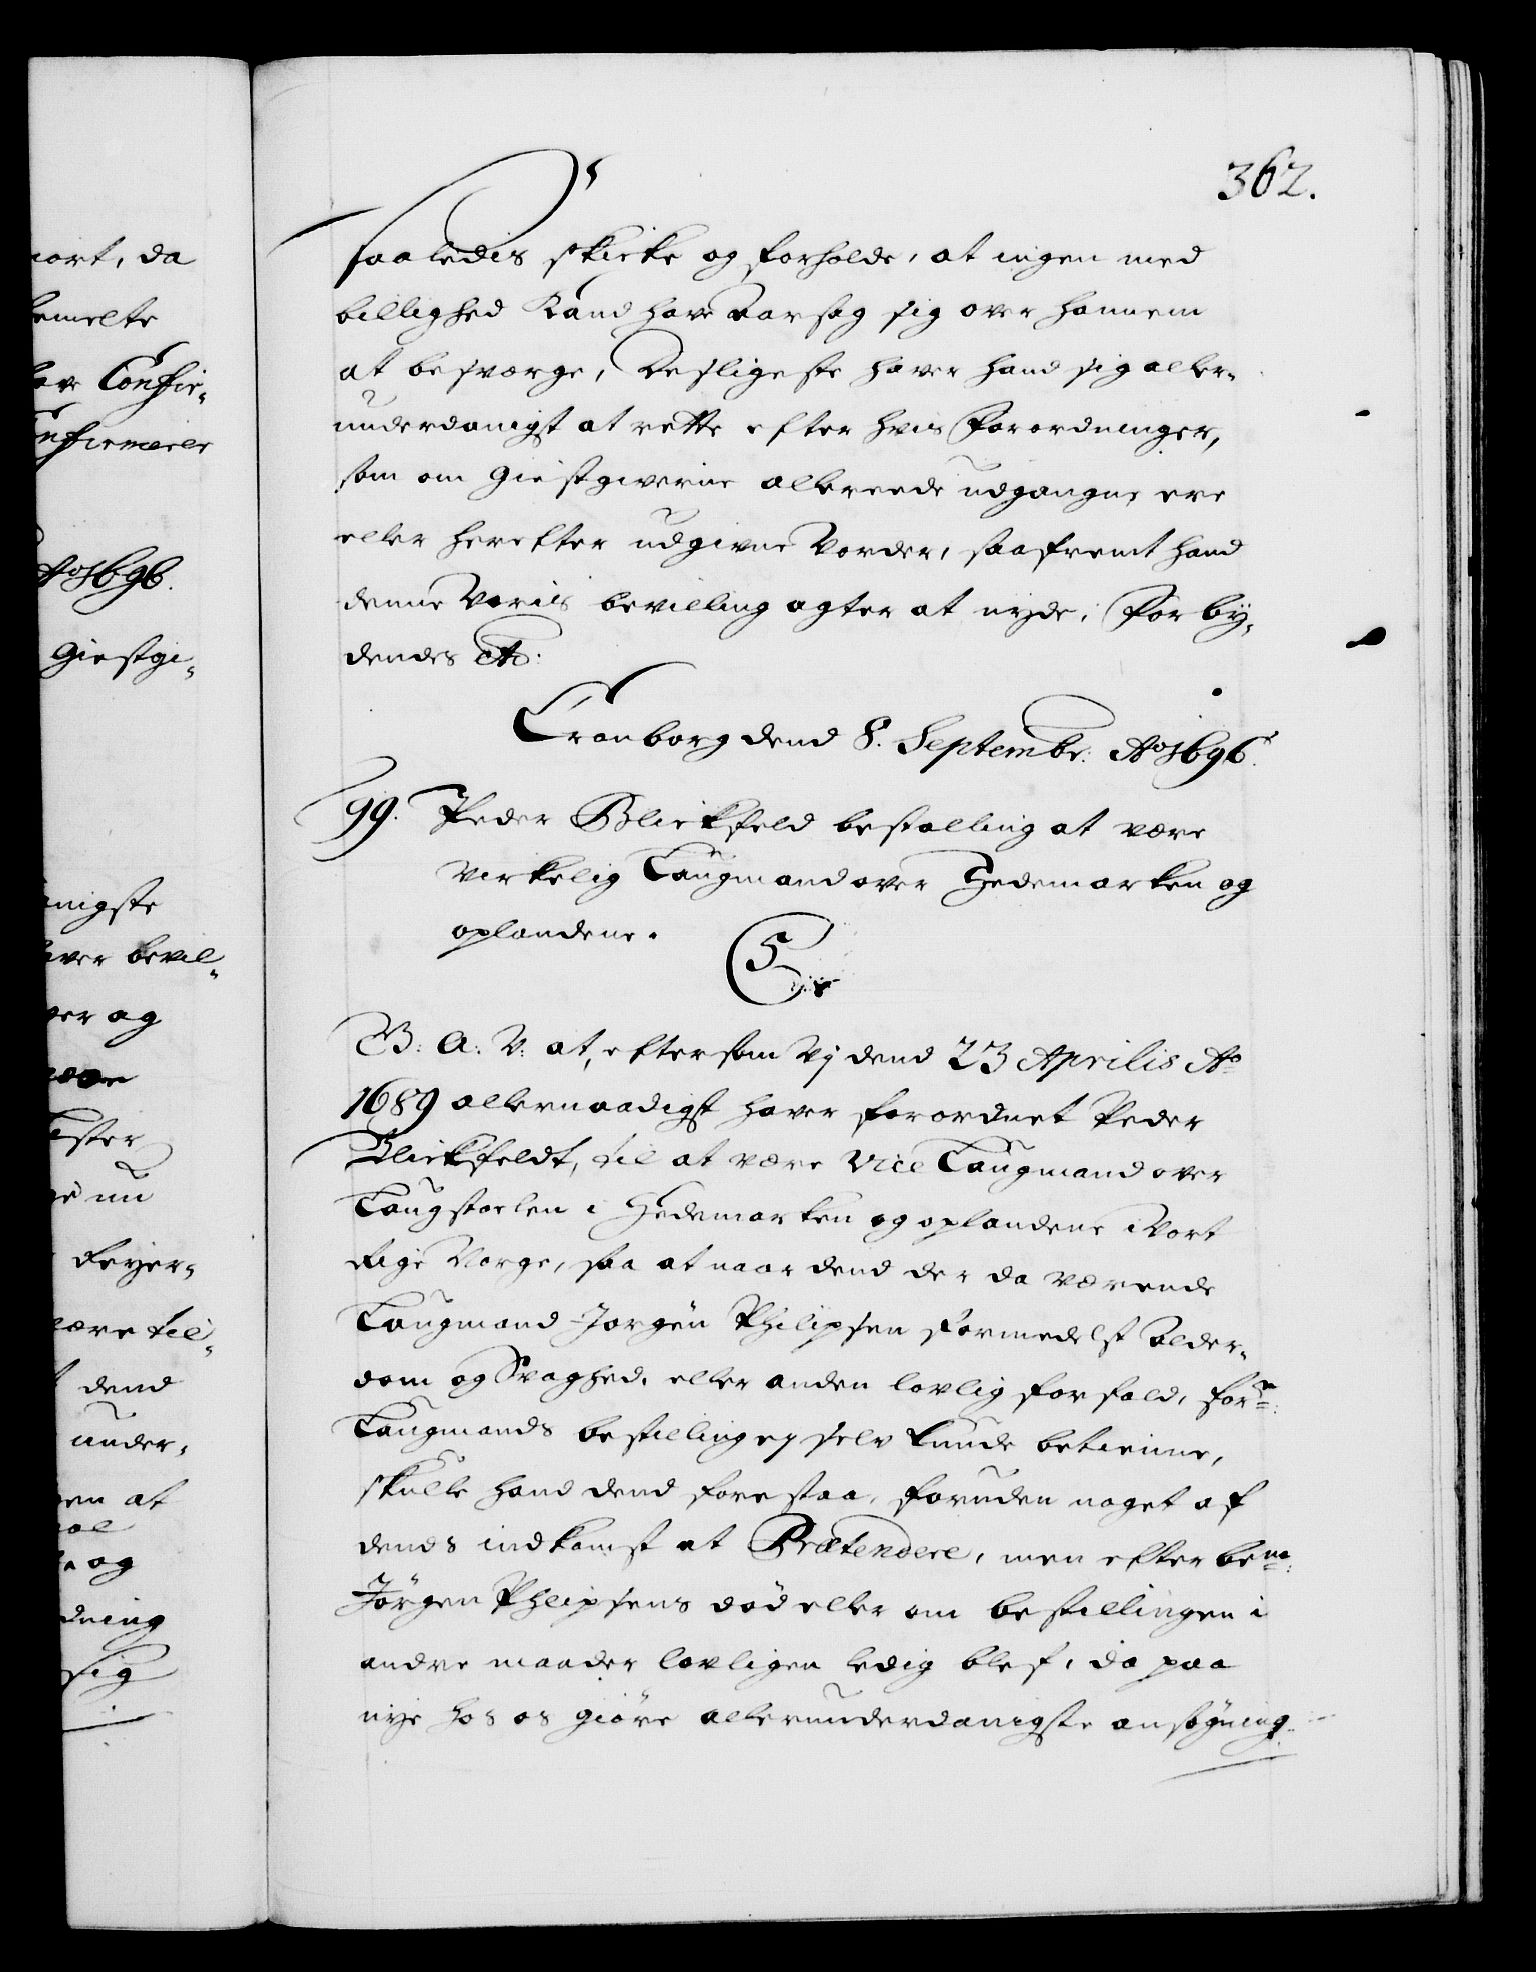 iort, da
bemelte
have Confir-
Confirmerer
Ao 1696.
Giestgi-
nigste
haver bevil-
ver og
være
ester
nu
Feyer-
være til-
dend
under-
en at
og
dning
sig
362.
saaledis skicke og forholde, at ingen med
billighed Kand have Aarsag sig over hannem
at besværge, Desligeste haver hand sig aller-
underdanigst at rette efter hvis Forordninger,
som om Giestgiverne allereede udgangne ere
eller herefter udgivne Vorder, saafremt hand
denne Voris bevilling agter at nyde; Forby-
dendes etc:
Cronborg dend 8. Septembr: Ao 1696.
99. Peder Blickfeld bestalling at være
Virkelig Laugmand over Hedemarken og
oplandene.
V: A: V: at, eftersom Vj dend 23 Aprilis Ao
1689 allernaadigst haver forordnet Peder
Blickfeldt, til at være Vice Laugmand over
Laugstoelen i Hedemarken og oplandene i Vort
Rige Norge, saa at naar dend der da værende
Laugmand Jørgen Philipsen formedelst Alder-
dom og Svaghed, eller anden lovlig forfald, forne:
Laugmands bestilling ej selv kunde betienne,
skulle hand dend forestaa, foruden noget af
dends indkomst at Prætendere, men efter bemte:
Jørgen Phlipsens død eller om bestillingen i
andre maader lovligen ledig blef, da paa
nye hos os giøre allerunderdanigste ansøgning